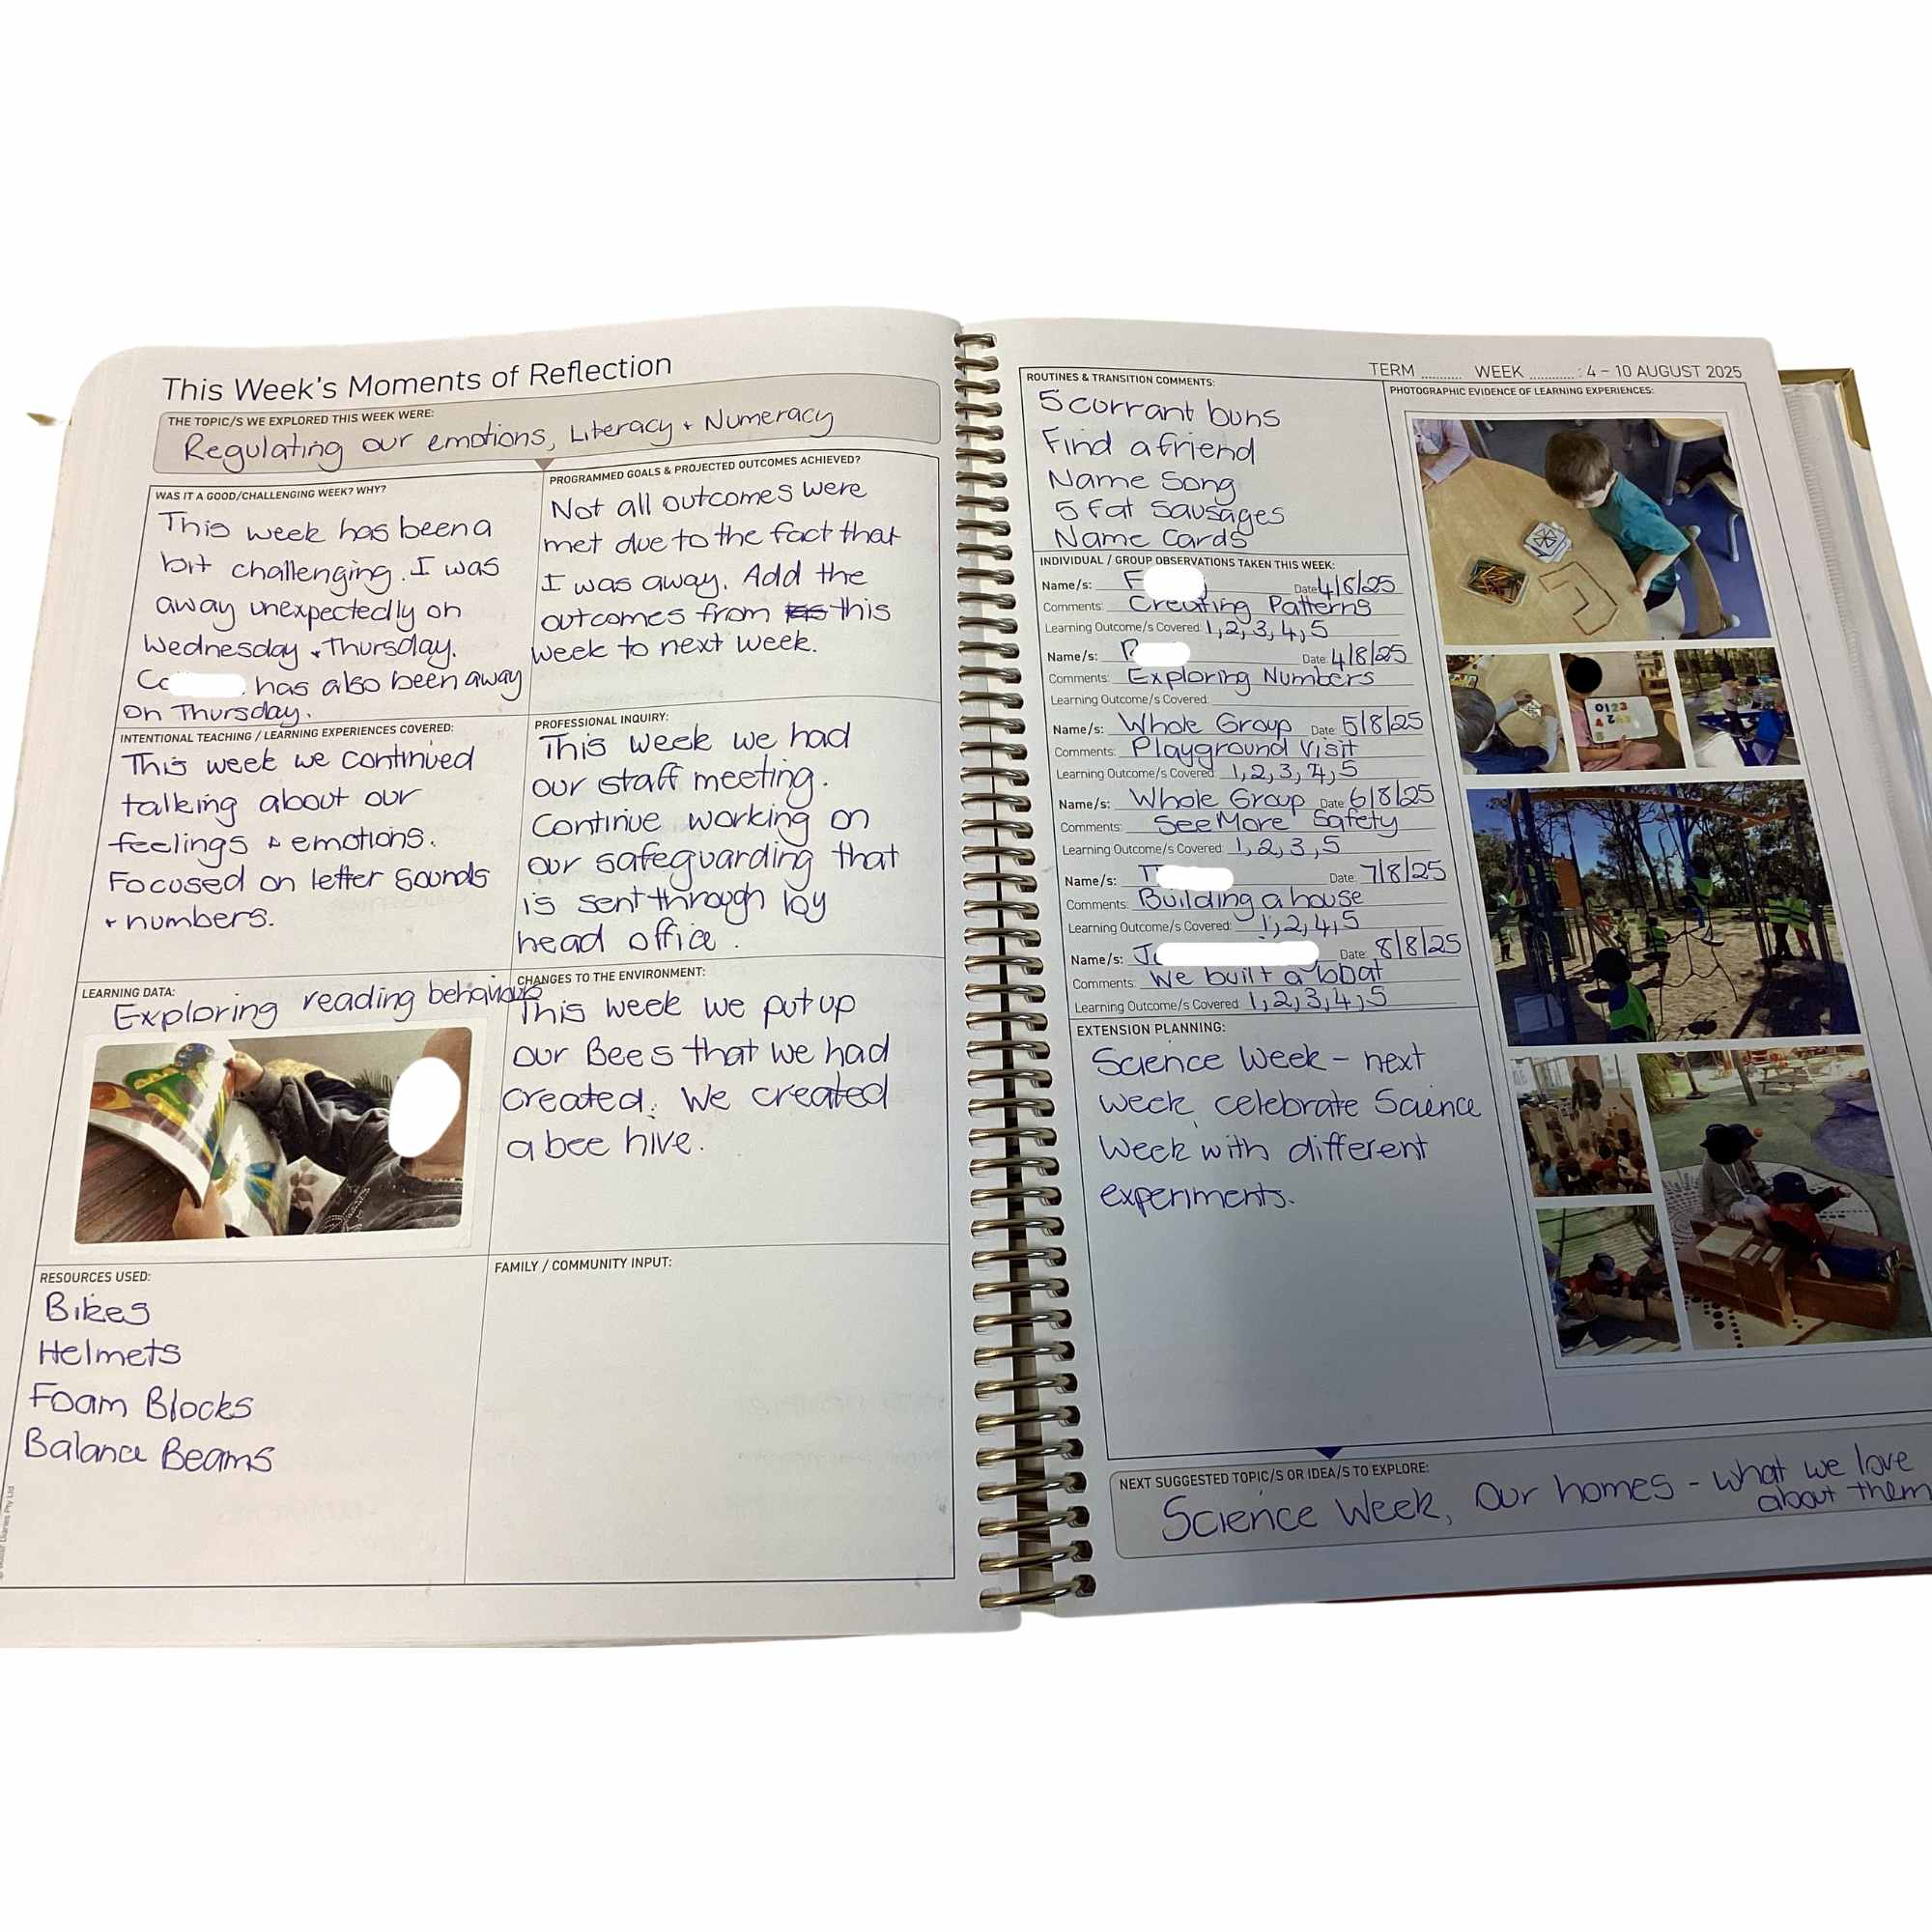 This Week's Moments of Reflection
THE TOPIC/S WE EXPLORED THIS WEEK WERE:
Regulating our emotions, Literacy + Numeracy
WAS IT A GOOD/CHALLENGING WEEK? WHY?
This week has been a
bit challenging. I was
away unexpectedly on
Wednesday + Thursday.
has also been away
on Thursday.
PROGRAMMED GOALS & PROJECTED OUTCOMES ACHIEVED?
Not all outcomes were
met due to the fact that
I was away. Add the
outcomes from this
week to next week.
INTENTIONAL TEACHING / LEARNING EXPERIENCES COVERED:
This week we continued
talking about our
feelings + emotions.
Focused on letter sounds
+ numbers.
PROFESSIONAL INQUIRY:
This week we had
our staff meeting.
Continue working on
our safeguarding that
is sent through by
head office.
LEARNING DATA:
Exploring reading behaviours
CHANGES TO THE ENVIRONMENT:
This week we put up
our Bees that we had
created. We created
a bee hive.
RESOURCES USED:
Bikes
Helmets
Foam Blocks
Balance Beams
FAMILY / COMMUNITY INPUT:
TERM ........... WEEK ........... : 4 – 10 AUGUST 2025
ROUTINES & TRANSITION COMMENTS:
5 corrant buns
Find a friend
Name Song
5 fat Sausages
Name Cards
INDIVIDUAL / GROUP OBSERVATIONS TAKEN THIS WEEK:
Name/s: F Date: 4/8/25
Comments: Creating Patterns
Learning Outcome/s Covered: 1, 2, 3, 4, 5
Name/s: Date: 4/8/25
Comments: Exploring Numbers
Learning Outcome/s Covered:
Name/s: Whole Group Date: 5/8/25
Comments: Playground Visit
Learning Outcome/s Covered: 1, 2, 3, 4, 5
Name/s: Whole Group Date: 6/8/25
Comments: SeeMore Safety
Learning Outcome/s Covered: 1, 2, 3, 5
Name/s: T Date: 7/8/25
Comments: Building a house
Learning Outcome/s Covered: 1, 2, 4, 5
Name/s: J Date: 8/8/25
Comments: We built a
Learning Outcome/s Covered: 1, 2, 3, 4, 5
EXTENSION PLANNING:
Science Week - next
week celebrate Science
Week with different
experiments.
PHOTOGRAPHIC EVIDENCE OF LEARNING EXPERIENCES:
0123
NEXT SUGGESTED TOPIC/S OR IDEA/S TO EXPLORE:
Science Week, Our homes - what we love
about them